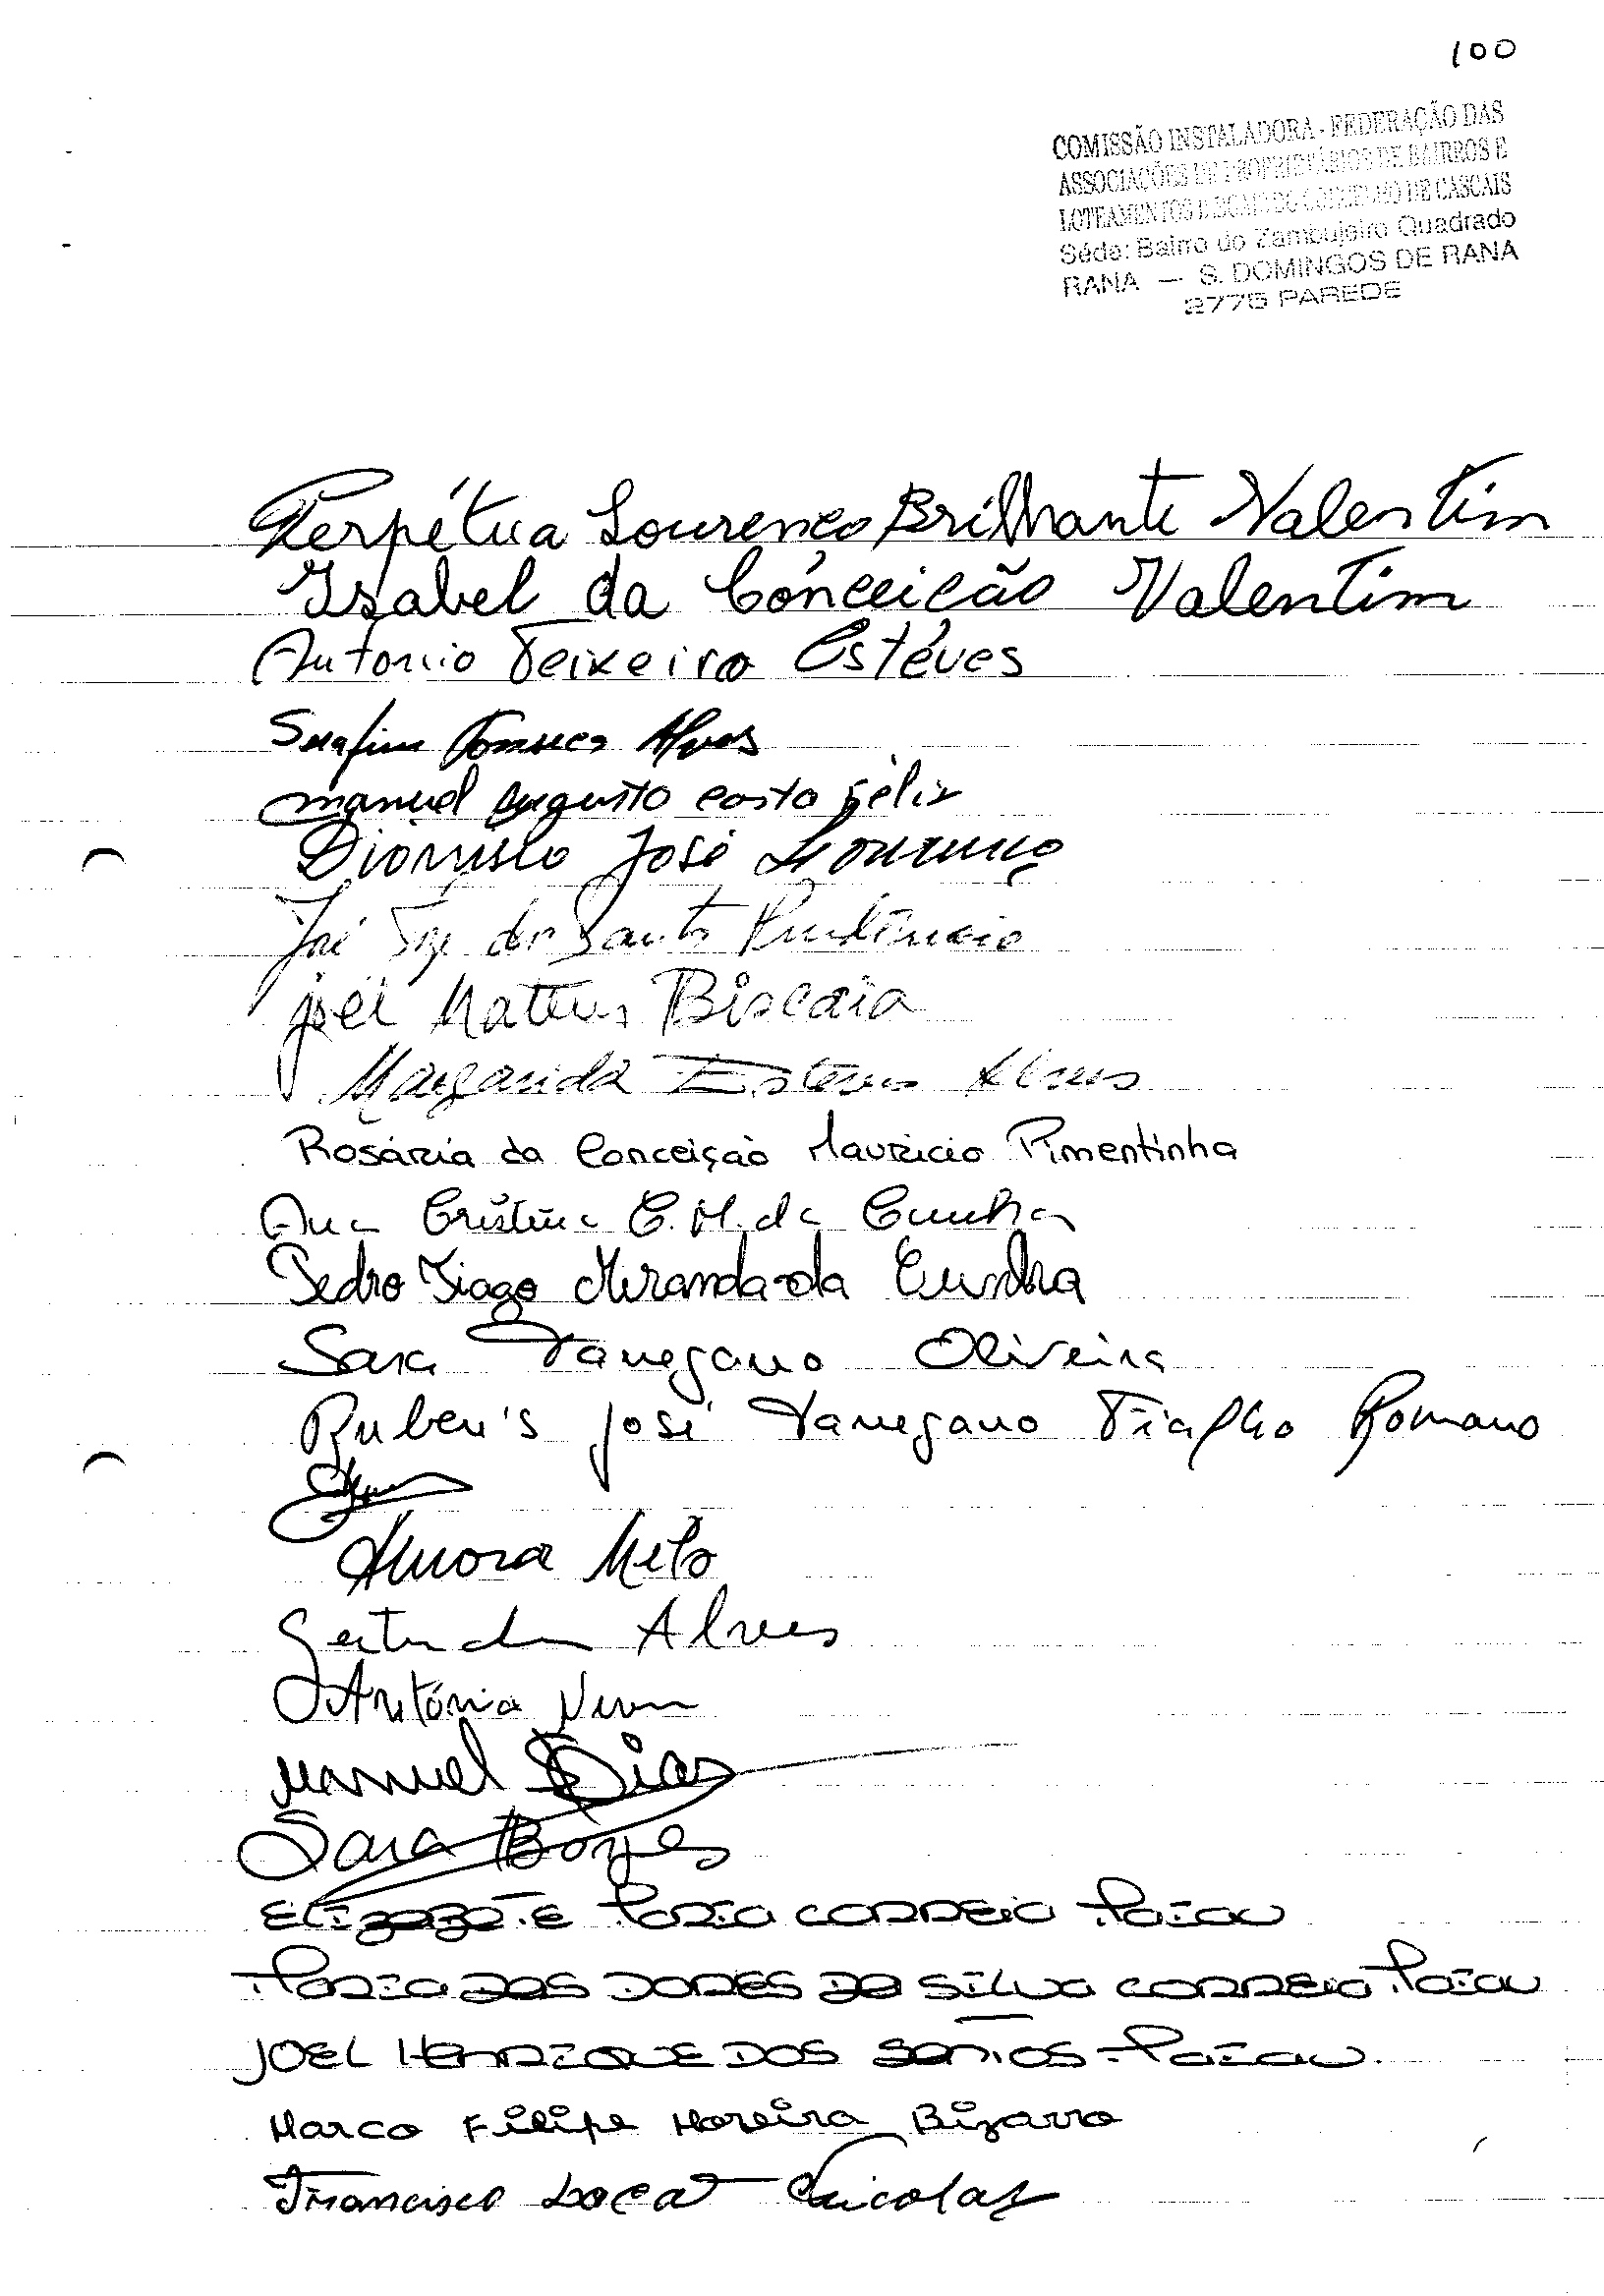 100
COMISSÃO INSTALADORA - FEDERAÇÃO DAS
ASSOCIAÇÕES DE PROPRIETÁRIOS DE BAIRROS E
LOTEAMENTOS DO CONCELHO DE CASCAIS
Séde: Bairro do Zambujeiro Quadrado
RANA — S. DOMINGOS DE RANA
2775 PAREDE
Perpétua Lourenço Brilhante Valentim
Isabel da Conceição Valentim
Antonio Teixeira Estéves
Serafim Fonseca Alves
manuel Augusto costa félix
Dionisio José Lourenço
José dos Santos Prudêncio
joel Mateus Biscaia
Margarida Esteves Alves
Rosária da Conceição Mauricio Pimentinha
Ana Cristina C. M. da Cunha
Pedro Tiago Miranda da Cunha
Sara Tanegano Oliveira
Ruben's josé Tanegano Fialho Romano
Aurora Melo
Gertrudes Alves
Antónia
Manuel Dias
Sara Borges
Elizabete Maria Correio
Maria das DORES da Silva Correio
JOEL HENRIQUE DOS Santos
Marco Filipe Moreira Bizarro
Francisco Nicolas